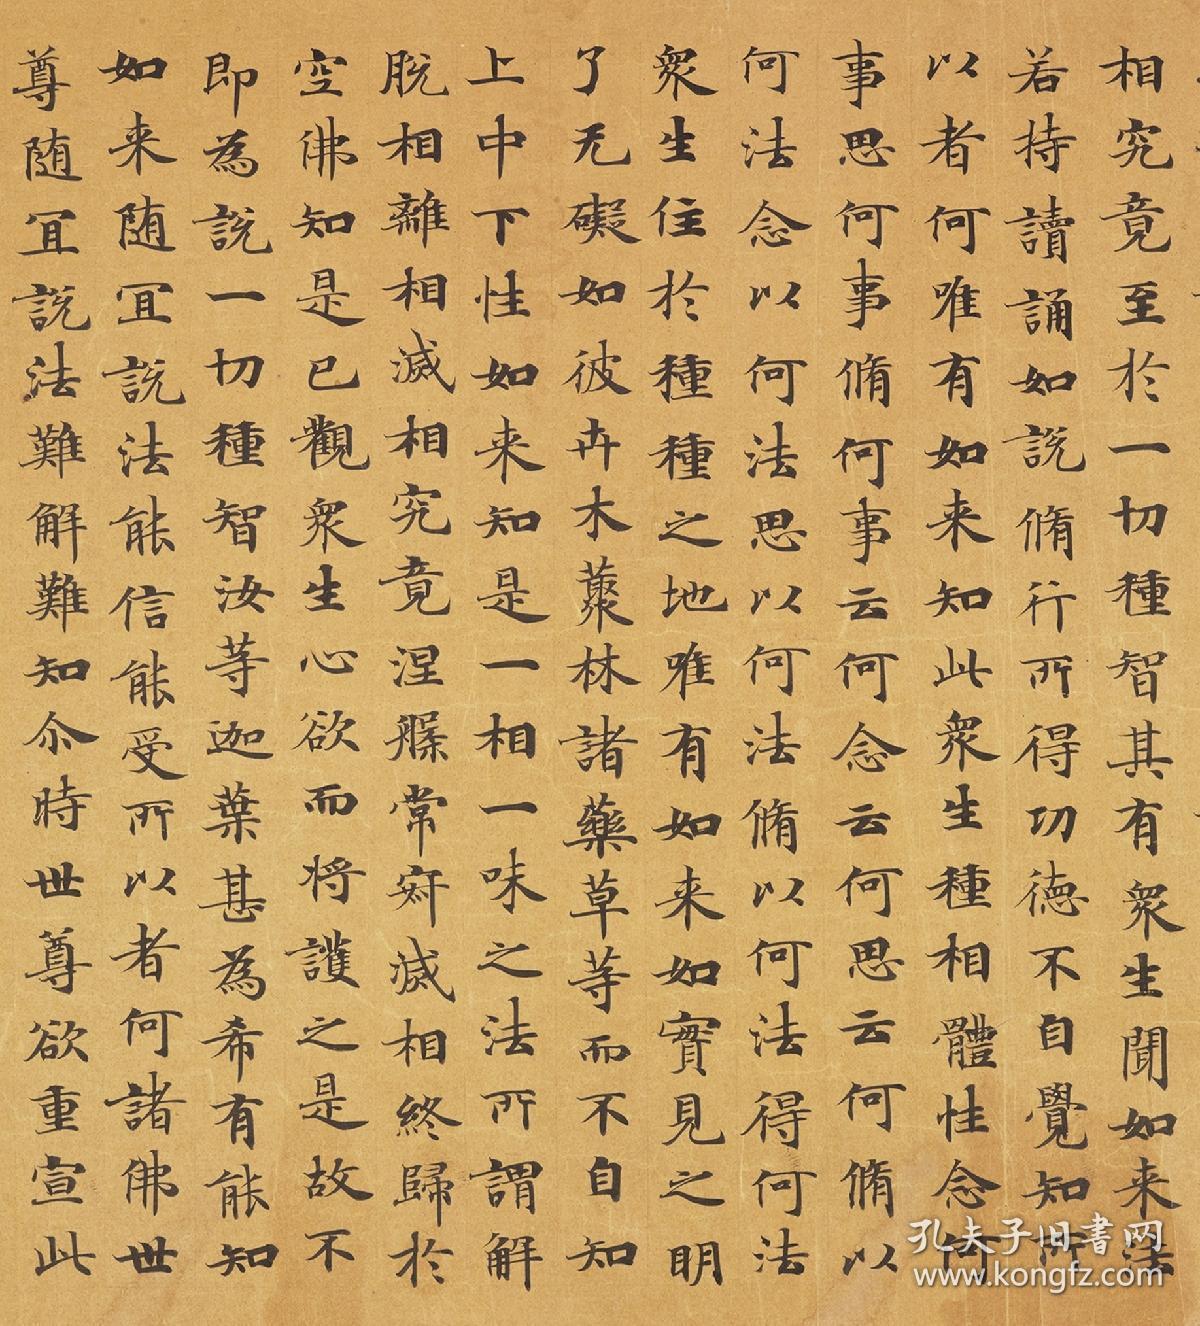 相究竟至於一切種智其有衆生聞如来法
若持讀誦如説脩行所得功徳不自覺知所
以者何唯有如来知此衆生種相體性念何
事思何事脩何事云何念云何思云何脩以
何法念以何法思以何法脩以何法得何法
衆生住於種種之地唯有如来如實見之明
了无礙如彼卉木藂林諸藥草等而不自知
上中下性如来知是一相一味之法所謂解
脱相離相滅相究竟涅槃常寂滅相終歸於
空佛知是已觀衆生心欲而将護之是故不
即為説一切種智汝等迦葉甚為希有能知
如来随宜説法能信能受所以者何諸佛世
尊随宜説法難解難知尒時世尊欲重宣此
孔夫子旧書网
www.kongfz.com